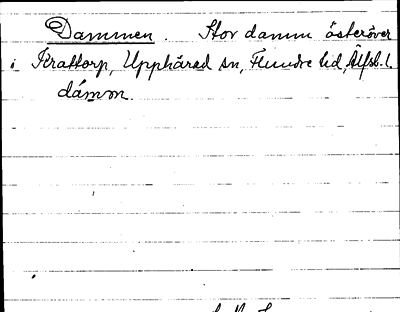 Dammen. Stor damm österöver
i Krattorp, Upphärad sn, Flundre hd, Älfsb. l.
dámmn.